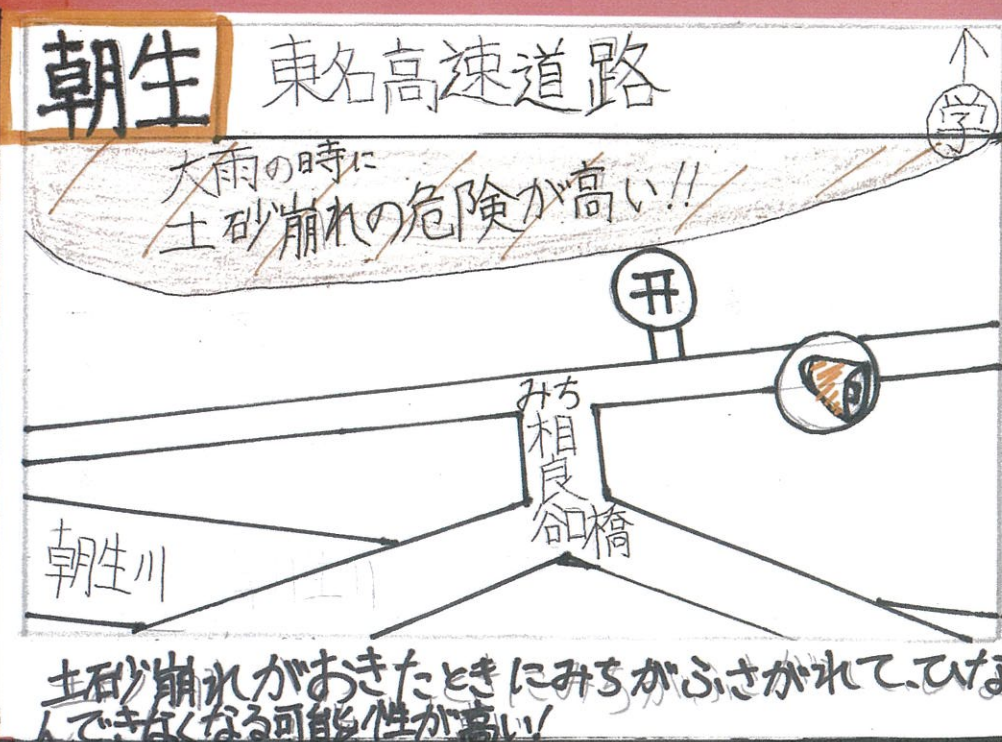 朝生
東名高速道路
学
大雨の時に
土砂崩れの危険が高い!!
みち
相良谷口橋
朝生川
土砂崩れがおきたときにみちがふさがれて、ひな
んできなくなる可能性が高い!